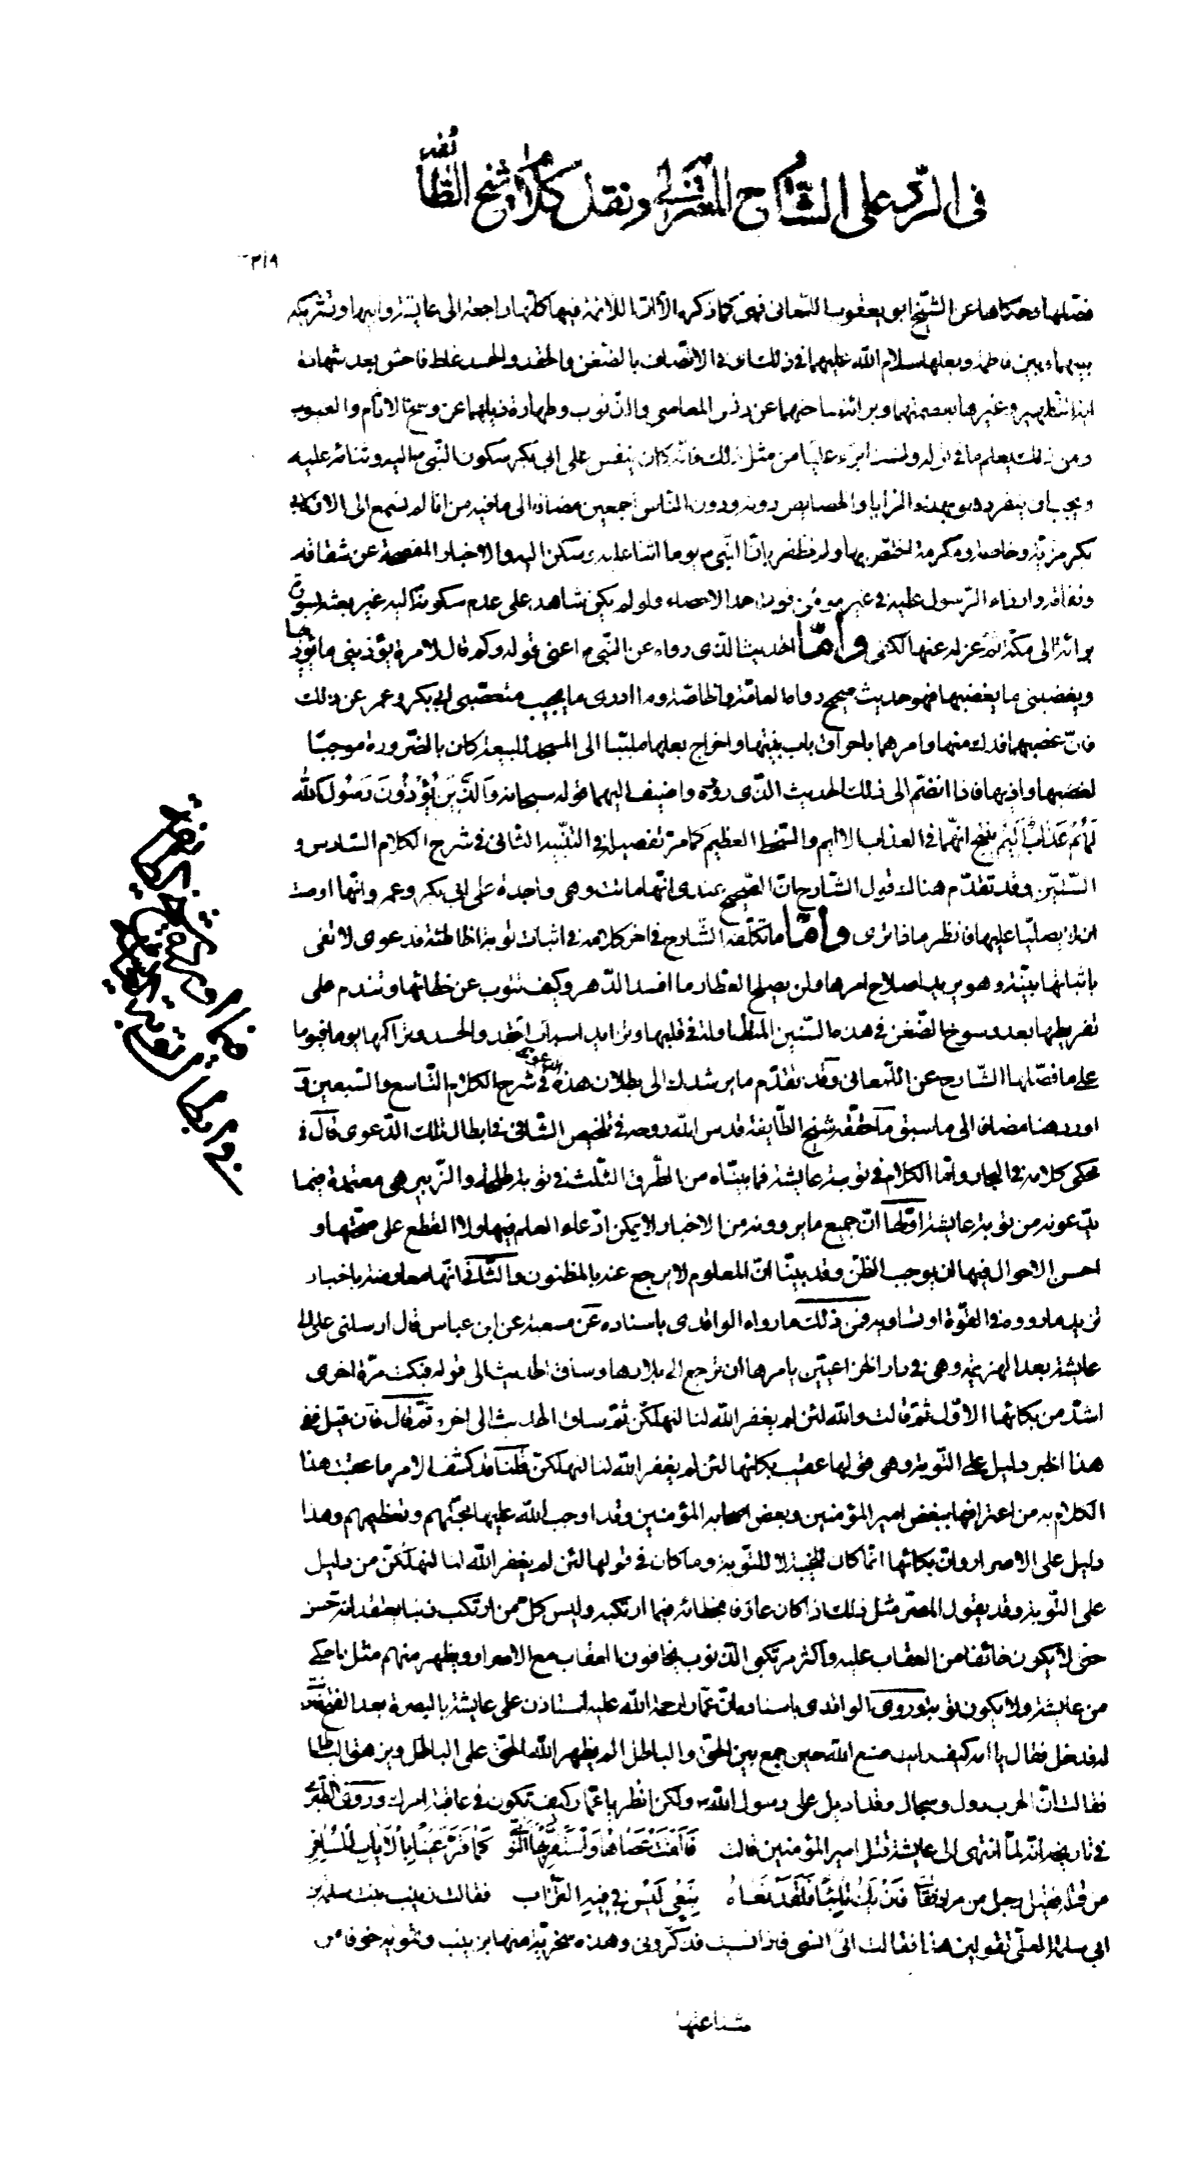 في الرد على الشارح المعتزلي ونقل كلام شيخ الطائفة
٣١٩
فصّلها وحكاها عن الشيخ ابو يعقوب اللمعاني فهي كما ذكره الا ان اللائمة فيها كلّها راجعة الى عايشة وابيها وتشريكه
بينهما وبين فاطمة وبعلها سلام الله عليهما في ذلك اى في الاتّصاف بالضغن والحقد والحسد غلط فاحش بعد شهادة
اية التطهير وغيرها بعصمتهما وبرائة ساحتهما عن دنس المعاصي والذّنوب وطهارة ذيلهما عن وسخ الآثام والعيوب
ومن ذلك يعلم ما في قوله ولست ابرّء عليّا من مثل ذلك فانّه كان ينفس على ابي بكر سكون النّبي ص اليه وثنائه عليه
ويحب ان ينفرد هو بهذه المزايا والخصايص دونه ودون النّاس اجمعين مضافا الى ما فيه من انّا لم نسمع الى الآن لابي
بكر مزيّة وخاصة ومكرمة اختصّ بها ولم نظفر بانّ النّبي ص يوما اثنا عليه وسكن اليه والاخبار المفصحة عن شقاقه
ونفاقه وازراء الرّسول عليه في غير موطن فوق حد الاحصاء ولو لم يكن شاهد على عدم سكونه اليه غير بعثه بسورة
برائة الى مكّة ثمّ عزله عنها لكفى وأمّا الحديث الّذى رواه عن النّبي ص اعنى قوله وكم قال لا مرّة يؤذيني ما يؤذيها
ويغضبني ما يغضبها فهو حديث صحيح رواه العامّة والخاصّة وما ادرى ما يجيب متعصّبي ابي بكر وعمر عن ذلك
فانّ غصبهما فدك منها وامرهما باحراق باب بيتها واخراج بعلها ملبّبا الى المسجد للبيعة كان بالضّرورة موجبا
لغضبها واذيها فاذا انضمّ الى ذلك الحديث الّذى رووه واضيف اليهما قوله سبحانه وَالَّذينَ يُؤْذُونَ رَسُولَ اللهِ
لَهُمْ عَذابٌ أَليمٌ ينتج انّهما في العذاب الاليم والسّخط العظيم كما مرّ تفصيله في التنبيه الثاني في شرح الكلام السّادس و
السّتّين وقد تقدّم هناك قول الشّارح انّ الصّحيح عندي انّها ماتت وهي واجدة على ابي بكر وعمر وانّها اوصت
ان لا يصلّيا عليها فانظر ما ذا ترى وأمّا ما تكلّفه الشّارح في اخر كلامه في اثبات توبة الخاطئة فدعوى لا تفى
باثباتها بيّنة وهو يريد اصلاح امرها ولن يصلح العطّار ما افسد الدّهر وكيف تتوب عن خطائها وتندم على
تفريطها بعد رسوخ الضّغن في هذه السّنين المتطاولة في قلبها وتزايد اسباب الحقد والحسد وتراكمها يوما فيوما
على ما فصّلها الشّارح عن اللّمعاني وقد تقدّم ما يرشدك الى بطلان هذه الدعوى في شرح الكلام التّاسع والسّبعين و
اورد هنا مضافا الى ما سبق ما حقّقه شيخ الطّايفة قدس الله روحه في تلخيص الشّافي في ابطال تلك الدّعوى قال في
محكى كلامه في البحار وامّا الكلام في توبة عايشة فما بيّناه من الطّرق الثّلث في توبة طلحة والزّبير هي معتمدة فيما
يدّعونه من توبة عايشة اوّلها انّ جميع ما يروونه من الاخبار لا يمكن ادّعاء العلم فيها ولا القطع على صحّتها و
احسن الاحوال فيها ان يوجب الظنّ وقد بيّنّا انّ المعلوم لا يرجع عنه بالمظنون والثّاني انّها معارضة باخبار
تزيد ما رووه في القوّة او تساويه فمن ذلك ما رواه الواقدي باسناده عن مسعبة عن ابن عباس قال ارسلني علي الى
عايشة بعد الهزيمة وهي في دار الخزاعيّين يامرها ان ترجع الى بلادها وساق الحديث الى قوله فبكت مرّة اخرى
اشدّ من بكائها الاوّل ثمّ قالت والله لئن لم يغفر الله لنا لنهلكنّ ثمّ ساق الحديث الى اخره ثمّ قال فان قيل ففي
هذا الخبر دليل على التّوبة وهي قولها عقيب بكائها لئن لم يغفر الله لنا لنهلكنّ قلنا قد كشف الامر ما عقبت هذا
الكلام به من اعترافها ببغض امير المؤمنين وبغض اصحابه المؤمنين وقد اوجب الله عليها محبّتهم وتعظيمهم وهذا
دليل على الاصرار وانّ بكائها انّما كان للخيبة لا للتّوبة وما كان في قولها لئن لم يغفر الله لنا لنهلكنّ من دليل
على التّوبة وقد يقول المصرّ مثل ذلك اذا كان عارفا بخطائه فيما ارتكبه وليس كلّ من ارتكب ذنبا يعتقد انّه حسن
حتى لا يكون خائفا من العقاب عليه واكثر مرتكبي الذّنوب يخافون العقاب مع الاصرار ويظهر منهم مثل ما حكى
من عايشة ولا يكون توبة وروى الواقدي باسناده انّ عمّارا رحمة الله عليه استاذن على عايشة بالبصرة بعد الفتح فاذنت
له فدخل فقال يا امه كيف رايت صنع الله حين جمع بين الحقّ والباطل الم يظهر الله الحقّ على الباطل ويزهق الباطل
فقالت انّ الحرب دول وسجال وقد اديل على رسول الله ص ولكن انظر يا عمّار كيف تكون في عاقبة امرك وروى الطّبرى
في تاريخه انّه لمّا انتهى الى عايشة قتل امير المؤمنين قالت فَأَلْقَتْ عَصاها وَاسْتَقَرَّ بِها النَّوى كَما قَرَّ عَيْناً بِالْإِيابِ الْمُسافِرِ
من قتله فقيل رجل من مراد فقالت فَإِنْ يَكُ نائِياً فَلَقَدْ نَعاهُ نَعِيٌّ لَيْسَ في فيهِ التُّراب فقالت زينب بنت سلمة بن
ابي سلمة العلىّ تقولين هذا فقالت انّى انسى فاذا نسيت فذكّروني وهذه سخريّة منها بزينب وتمويه خوفا من
شناعتها